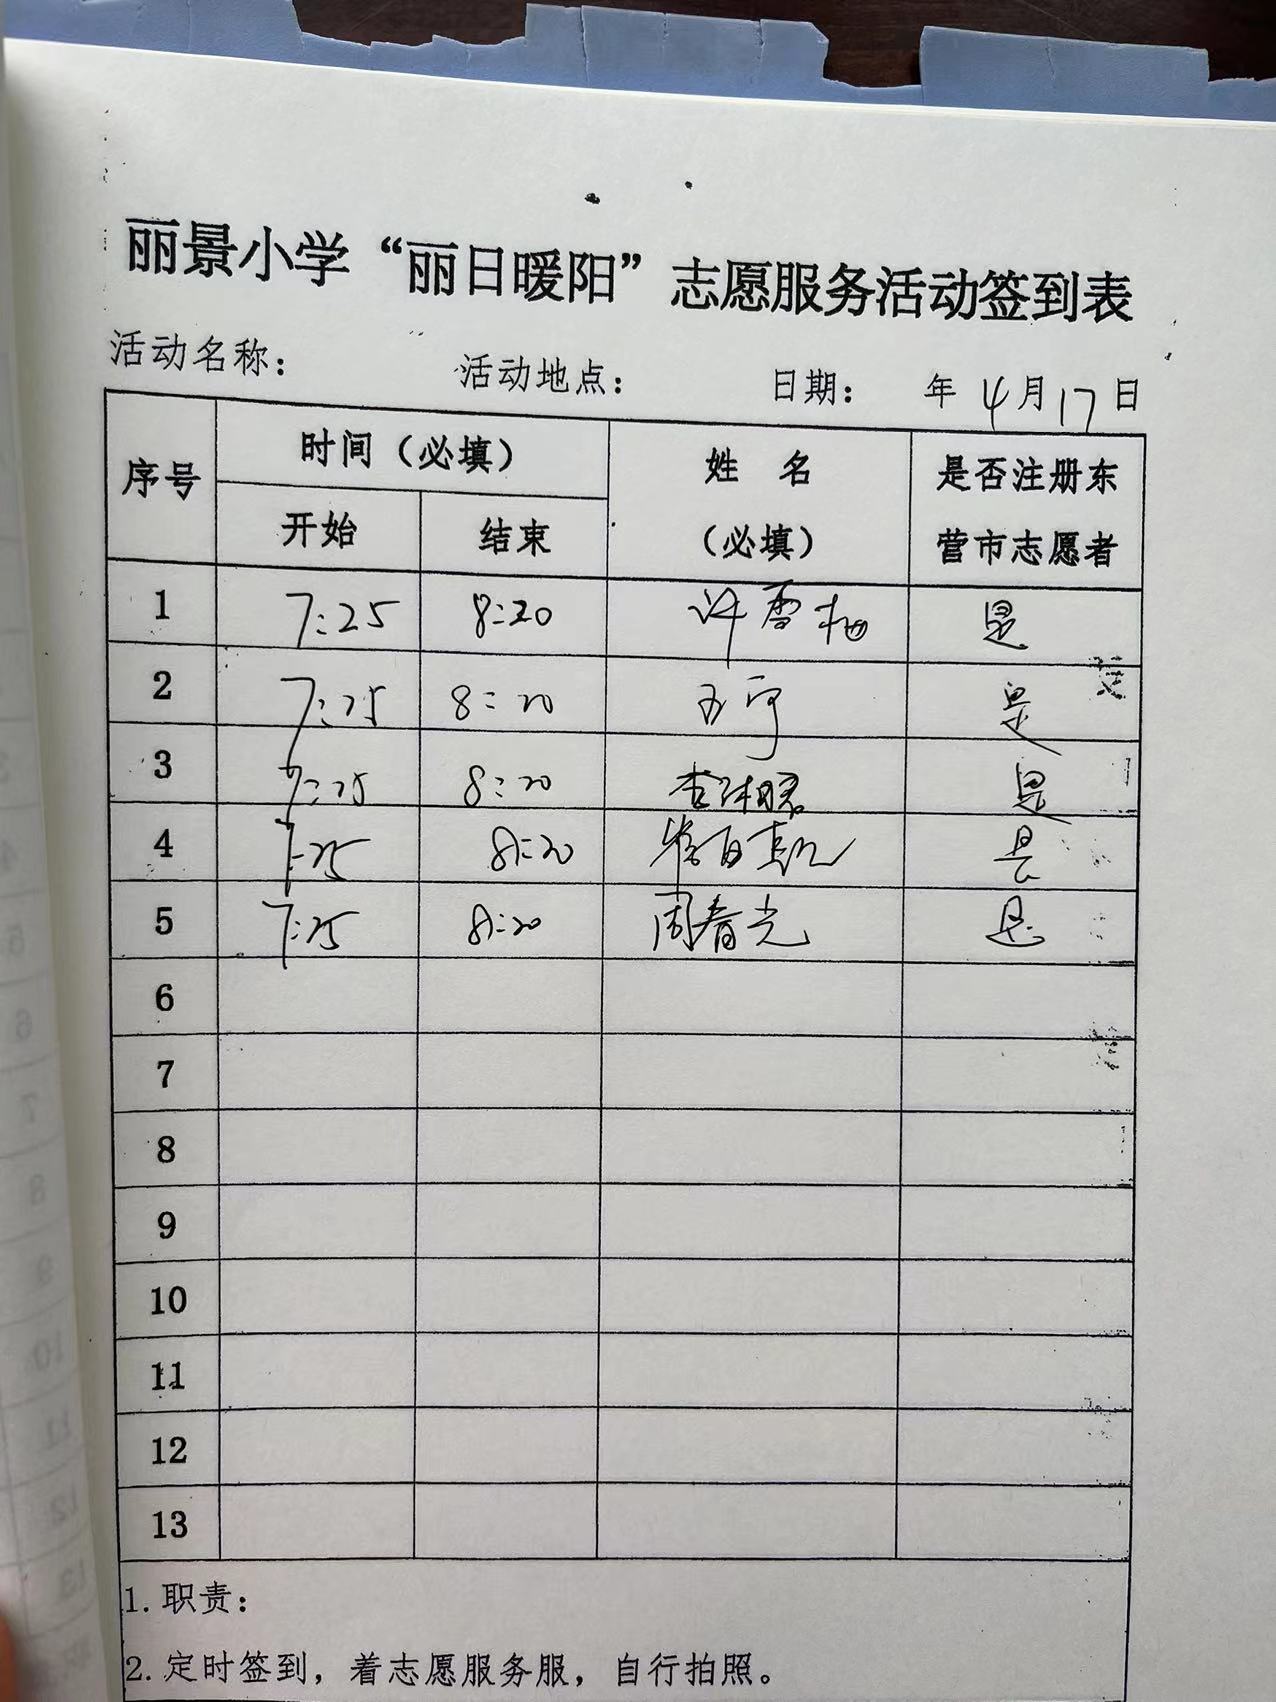 丽景小学“丽日暖阳”志愿服务活动签到表
活动名称： 活动地点： 日期： 年 4 月 17 日
序号 时间（必填） 姓 名（必填） 是否注册东营市志愿者
开始 结束
1 7:25 8:20 许雪梅 是
2 7:25 8:20 是
3 7:25 8:20 是
4 7:25 8:20 是
5 7:25 8:20 周春光 是
6
7
8
9
10
11
12
13
1. 职责：
2. 定时签到，着志愿服务服，自行拍照。